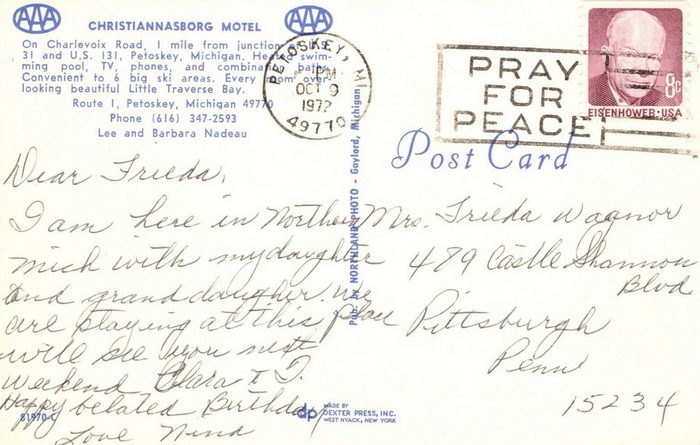 AAA
CHRISTIANNASBORG MOTEL
AAA
On Charlevoix Road, 1 mile from junction of U.S.
31 and U.S. 131, Petoskey, Michigan. Heated swim-
ming pool, TV, phones, and combination baths.
Convenient to 6 big ski areas. Every room over-
looking beautiful Little Traverse Bay.
Route 1, Petoskey, Michigan 49770
Phone (616) 347-2593
Lee and Barbara Nadeau
PETOSKEY, MI
PM
OCT 9
1972
49770
PRAY
FOR
PEACE
8c
EISENHOWER·USA
Post Card
Dear Frieda,
I am here in Northern
Mich with my daughter
and grand daugher. we
are staying at this place
will see you next
weekend Clara & J.
Happy belated Birthday
Love Nina
Mrs. Frieda Wagnor
479 Castle Shannon
Blvd
Pittsburgh
Penn
15234
Pub. by NORTHLAND PHOTO - Gaylord, Michigan
81970-C
dp
MADE BY
DEXTER PRESS, INC.
WEST NYACK, NEW YORK